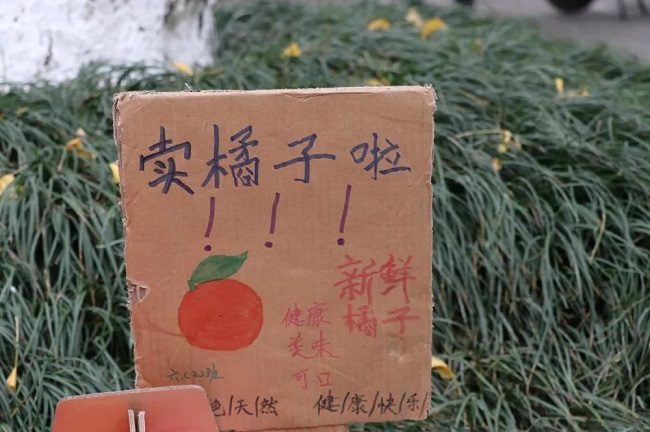 卖橘子啦
！！！
新鲜
橘子
健康
美味
可口
色/天/然 健/康/快/乐/